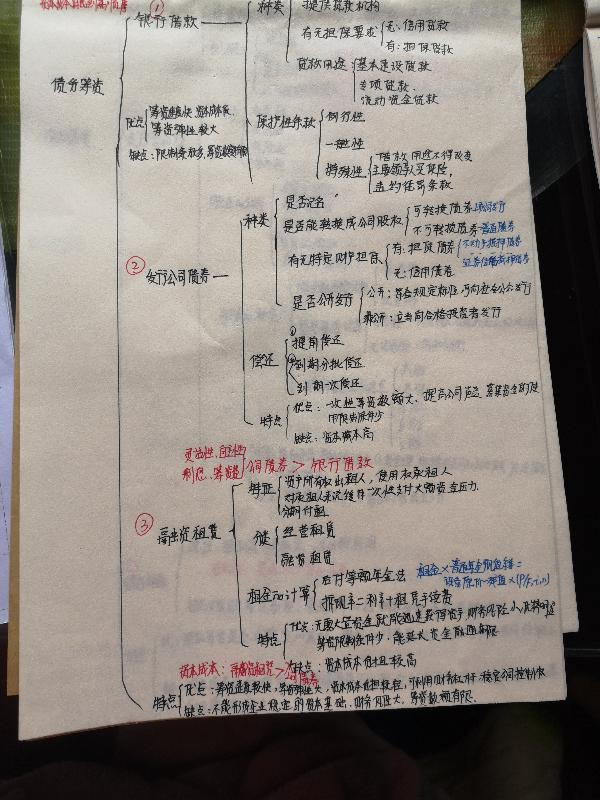 债务筹资
① 银行借款
种类
提供贷款机构
有无担保要求
无：信用贷款
有：担保贷款
贷款用途
基本建设贷款
专项贷款
流动资金贷款
优点
筹资速度快 资本成本低
筹资弹性较大
缺点：限制条款多，筹资数额有限
保护性条款
例行性
一般性
特殊性
借款用途不得改变
主要领导人买保险，
违约惩罚条款
② 发行公司债券
种类
是否记名
是否能转换成公司股权
可转换债券
不可转换债券 普通债券
有无特定财产担保
有：担保债券
不动产抵押债券
证券信托抵押债券
无：信用债券
是否公开发行
公开：符合规定标准，可向社会公众发行
非公开：应当向合格投资者发行
偿还
提前偿还
到期分批偿还
到期一次偿还
特点
优点：一次性筹资数额大、提高公司声誉，募集资金的使
用限制条件少
缺点：资本成本高
灵活性、
利息、筹资
公司债券 > 银行借款
③ 融资租赁
特征
资产所有权出租人，使用权承租人
对承租人来说缓解一次性支付大额资金压力
分期付租
分类
经营租赁
融资租赁
租金的计算
应付等额年金法
折现率=利率+租赁手续费
特点
优点：无需大量资金就能迅速获得资产，财务风险小，财务优势明显
筹资限制条件少，能延长资金融通期限
缺点：资本成本负担较高
资本成本：融资租赁 > 公司债券
特点
优点：筹资速度较快，筹资弹性大，资本成本负担较轻，可利用财务杠杆，稳定公司控制权
缺点：不能形成企业稳定的资本基础，财务风险大，筹资数额有限.